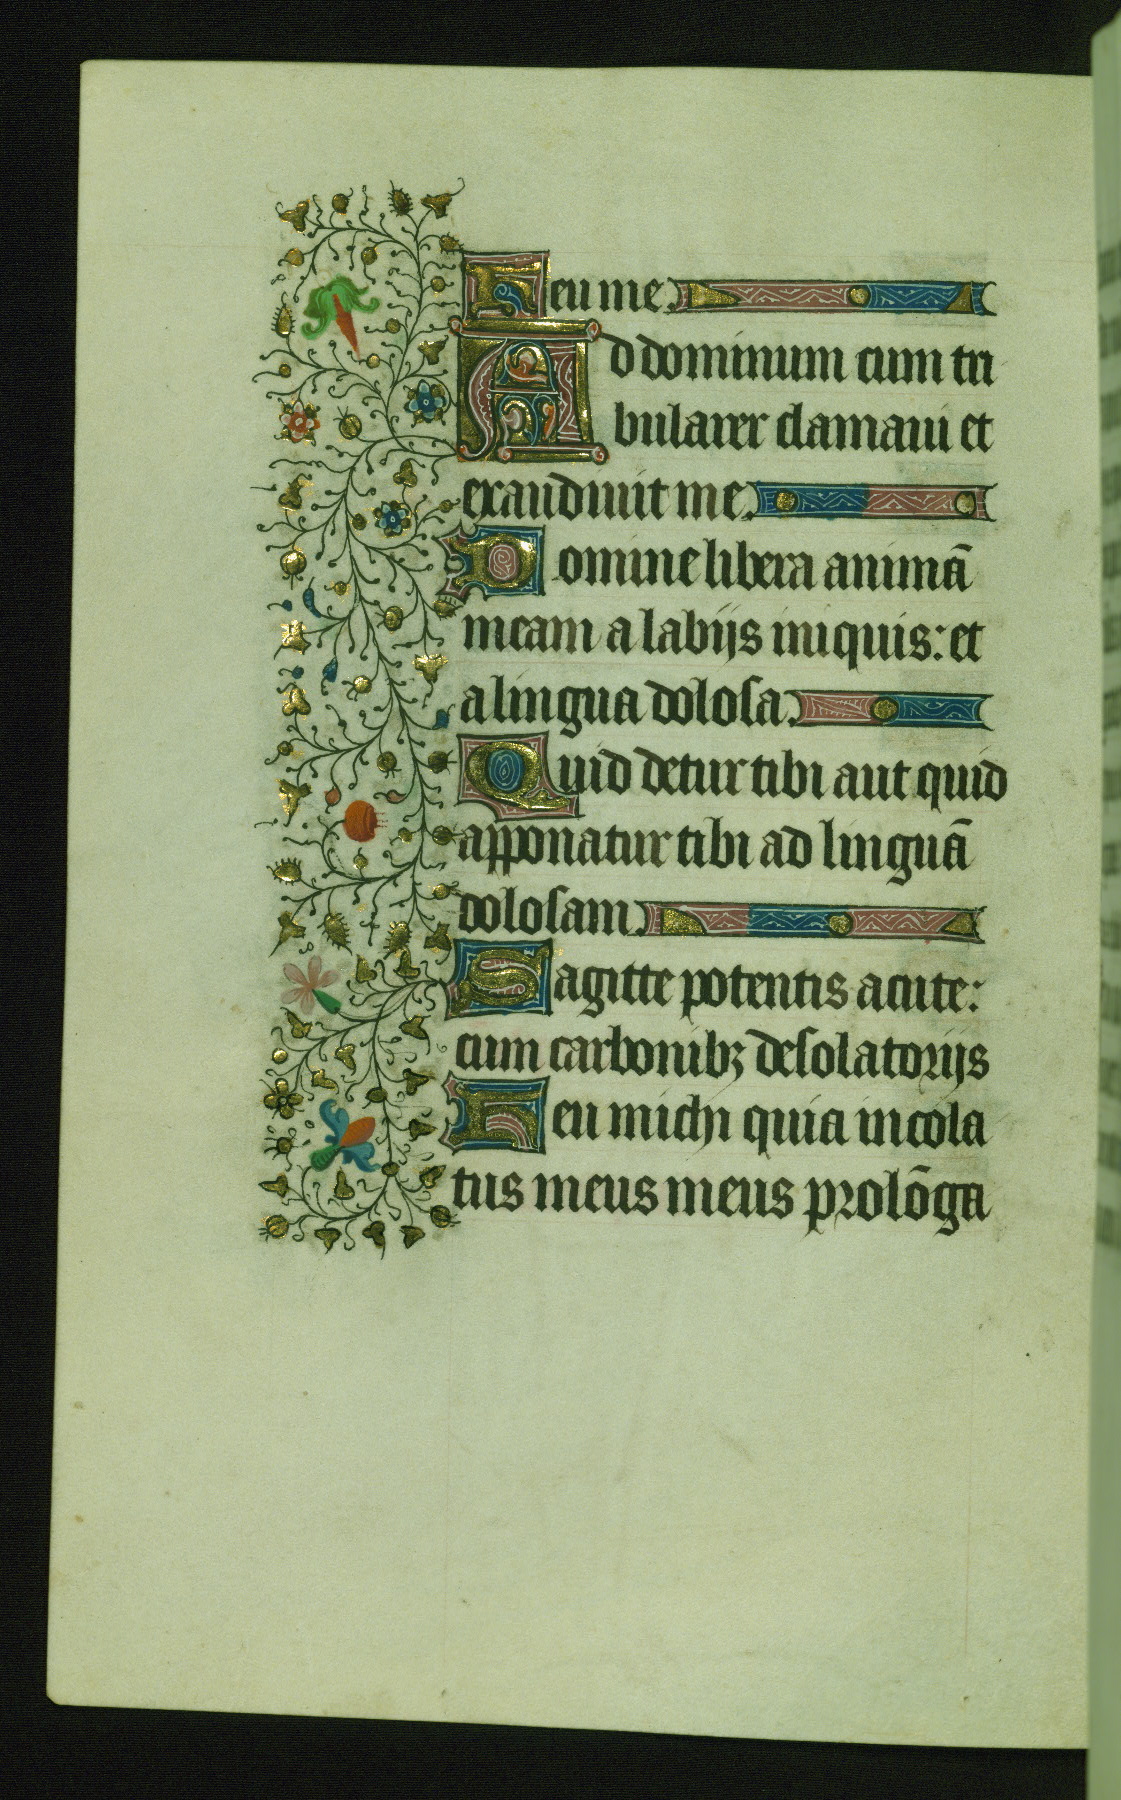 Heu me.
Ad dominum cum tri
bularer clamaui et
exaudiuit me.
Domine libera animā
meam a labijs iniquis: et
a lingua dolosa.
Quid detur tibi aut quid
apponatur tibi ad linguā
dolosam.
Sagitte potentis acute:
cum carbonibꝫ desolatorijs
Heu michi quia incola
tus meus meus prolōga